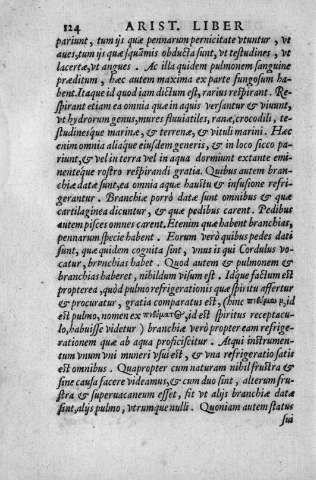 124 ARIST. LIBER
pariunt, tum ijs quæ pennarum pernicitate vtuntur, vt
aues, tum ijs quæ squamis obducta sunt, vt testudines, vt
lacertæ, vt angues. Ac illa quidem pulmonem sanguine
præditum, hæc autem maxima ex parte fungosum ha-
bent. Itaque id quod iam dictum est, rarius respirant. Re-
spirant etiam ea omnia quæ in aquis versantur & viuunt,
vt hydrorum genus, mures fluuiatiles, ranæ, crocodili, te-
studinesque marinæ, & terrenæ, & vituli marini. Hæc
enim omnia aliaque eiusdem generis, & in loco sicco pa-
riunt, & vel in terra vel in aqua dormiunt extante emi-
nenteque rostro respirandi gratia. Quibus autem bran-
chiæ datæ sunt, ea omnia aquæ haustu & infusione refri-
gerantur. Branchiæ porrò datæ sunt omnibus & quæ
cartilaginea dicuntur, & quæ pedibus carent. Pedibus
autem pisces omnes carent. Etenim quæ habent branchias,
pennarum specie habent. Eorum verò quibus pedes dati
sunt, quæ quidem cognita sint, vnus is qui Cordulus vo-
catur, brnchias habet. Quod autem & pulmonem &
branchias haberet, nihildum visum est. Idque factum est
propterea, quòd pulmo refrigerationis quæ spiritu affertur
& procuratur, gratia comparatus est, (hinc
est pulmo, nomen ex id est spiritus receptacu-
lo, habuisse videtur) branchiæ verò propter eam refrige-
rationem quæ ab aqua proficiscitur. Atqui instrumen-
tum vnum vni muneri vsui est, & vna refrigeratio satis
est omnibus. Quapropter cum naturam nihil frustra &
sine causa facere videamus, & cum duo sint, alterum fru-
stra & superuacaneum esset, fit vt alijs branchiæ datæ
sint, alijs pulmo, vtrumque nulli. Quoniam autem status
sui